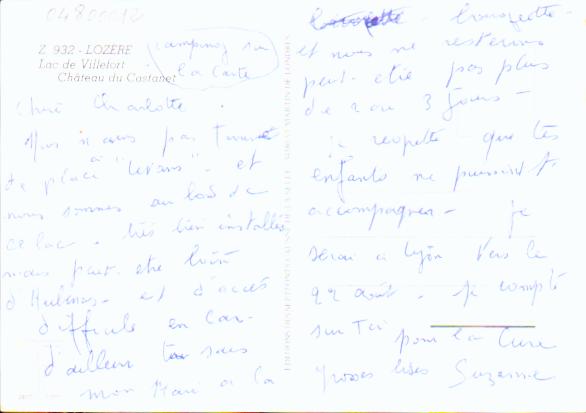 04800012
Z 932 - LOZÈRE
Lac de Villefort
Château du Castanet
camping sur
la carte
Chère Charlotte.
Nous n'avons pas trouvé
de place à "Levans". et
nous sommes au bord de
ce lac. très bien installés
mais peut-être loin
d'Aubenas. et d'accès
difficile en car.
d'ailleurs sans
mon Mari a la
bougeotte. bougeotte.
et nous ne resterons
peut-être pas plus
de 2 ou 3 jours -
je regrette que tes
enfants ne puissent t'
accompagner - je
serai à Lyon vers le
22 août. je compte
sur Toi pour la Cure
grosses bises Suzanne